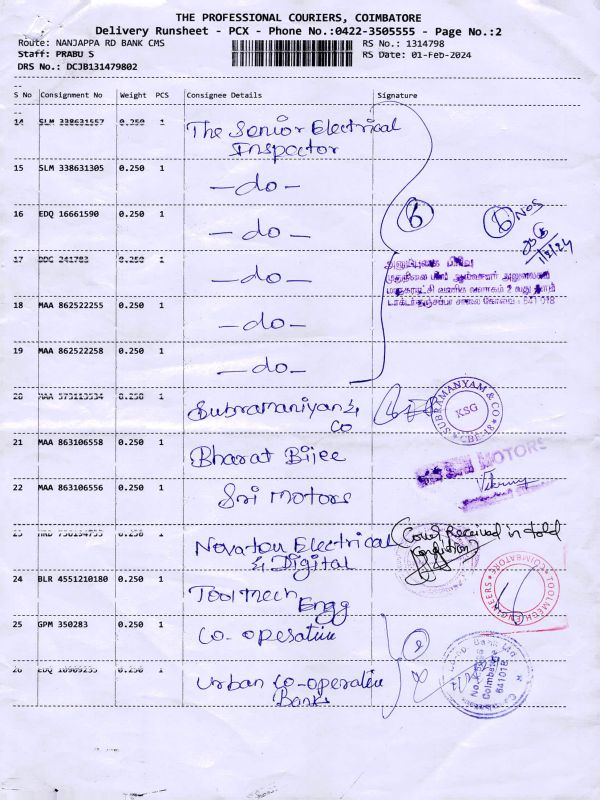 THE PROFESSIONAL COURIERS, COIMBATORE
Delivery Runsheet - PCX - Phone No.:0422-3505555 - Page No.:2
Route: NANJAPPA RD BANK CMS
RS No.: 1314798
Staff: PRABU S
RS Date: 01-Feb-2024
DRS No.: DCJB131479802
S No Consignment No Weight PCS Consignee Details Signature
14 SLM 338631557 0.250 1 The Senior Electrical
Inspector
15 SLM 338631305 0.250 1 -do-
16 EDQ 16661590 0.250 1 -do-
6
6 Nos
1/2/24
17 DDG 241783 0.250 1 -do-
18 MAA 862522255 0.250 1 -do-
641 018
19 MAA 862522258 0.250 1 -do-
20 MAA 573113534 0.250 1 Subramaniyan &
Co
SUBRAMANYAM & CO
KSG
CBE-18
21 MAA 863106558 0.250 1 Bharat Bijee
22 MAA 863106556 0.250 1 Sri Motors
SRI MOTORS
23 0.250 1 Novateu Electrical
& Digital
(Cover Received in told
Condition)
24 BLR 4551210180 0.250 1 Toolmech
Engg
TOOLMECH ENGINEERS
COIMBATORE
25 GPM 350283 0.250 1 Co-operative
2
26 EDQ 0.250 1 Urban Co-operative
Banks
Coimbatore
641018